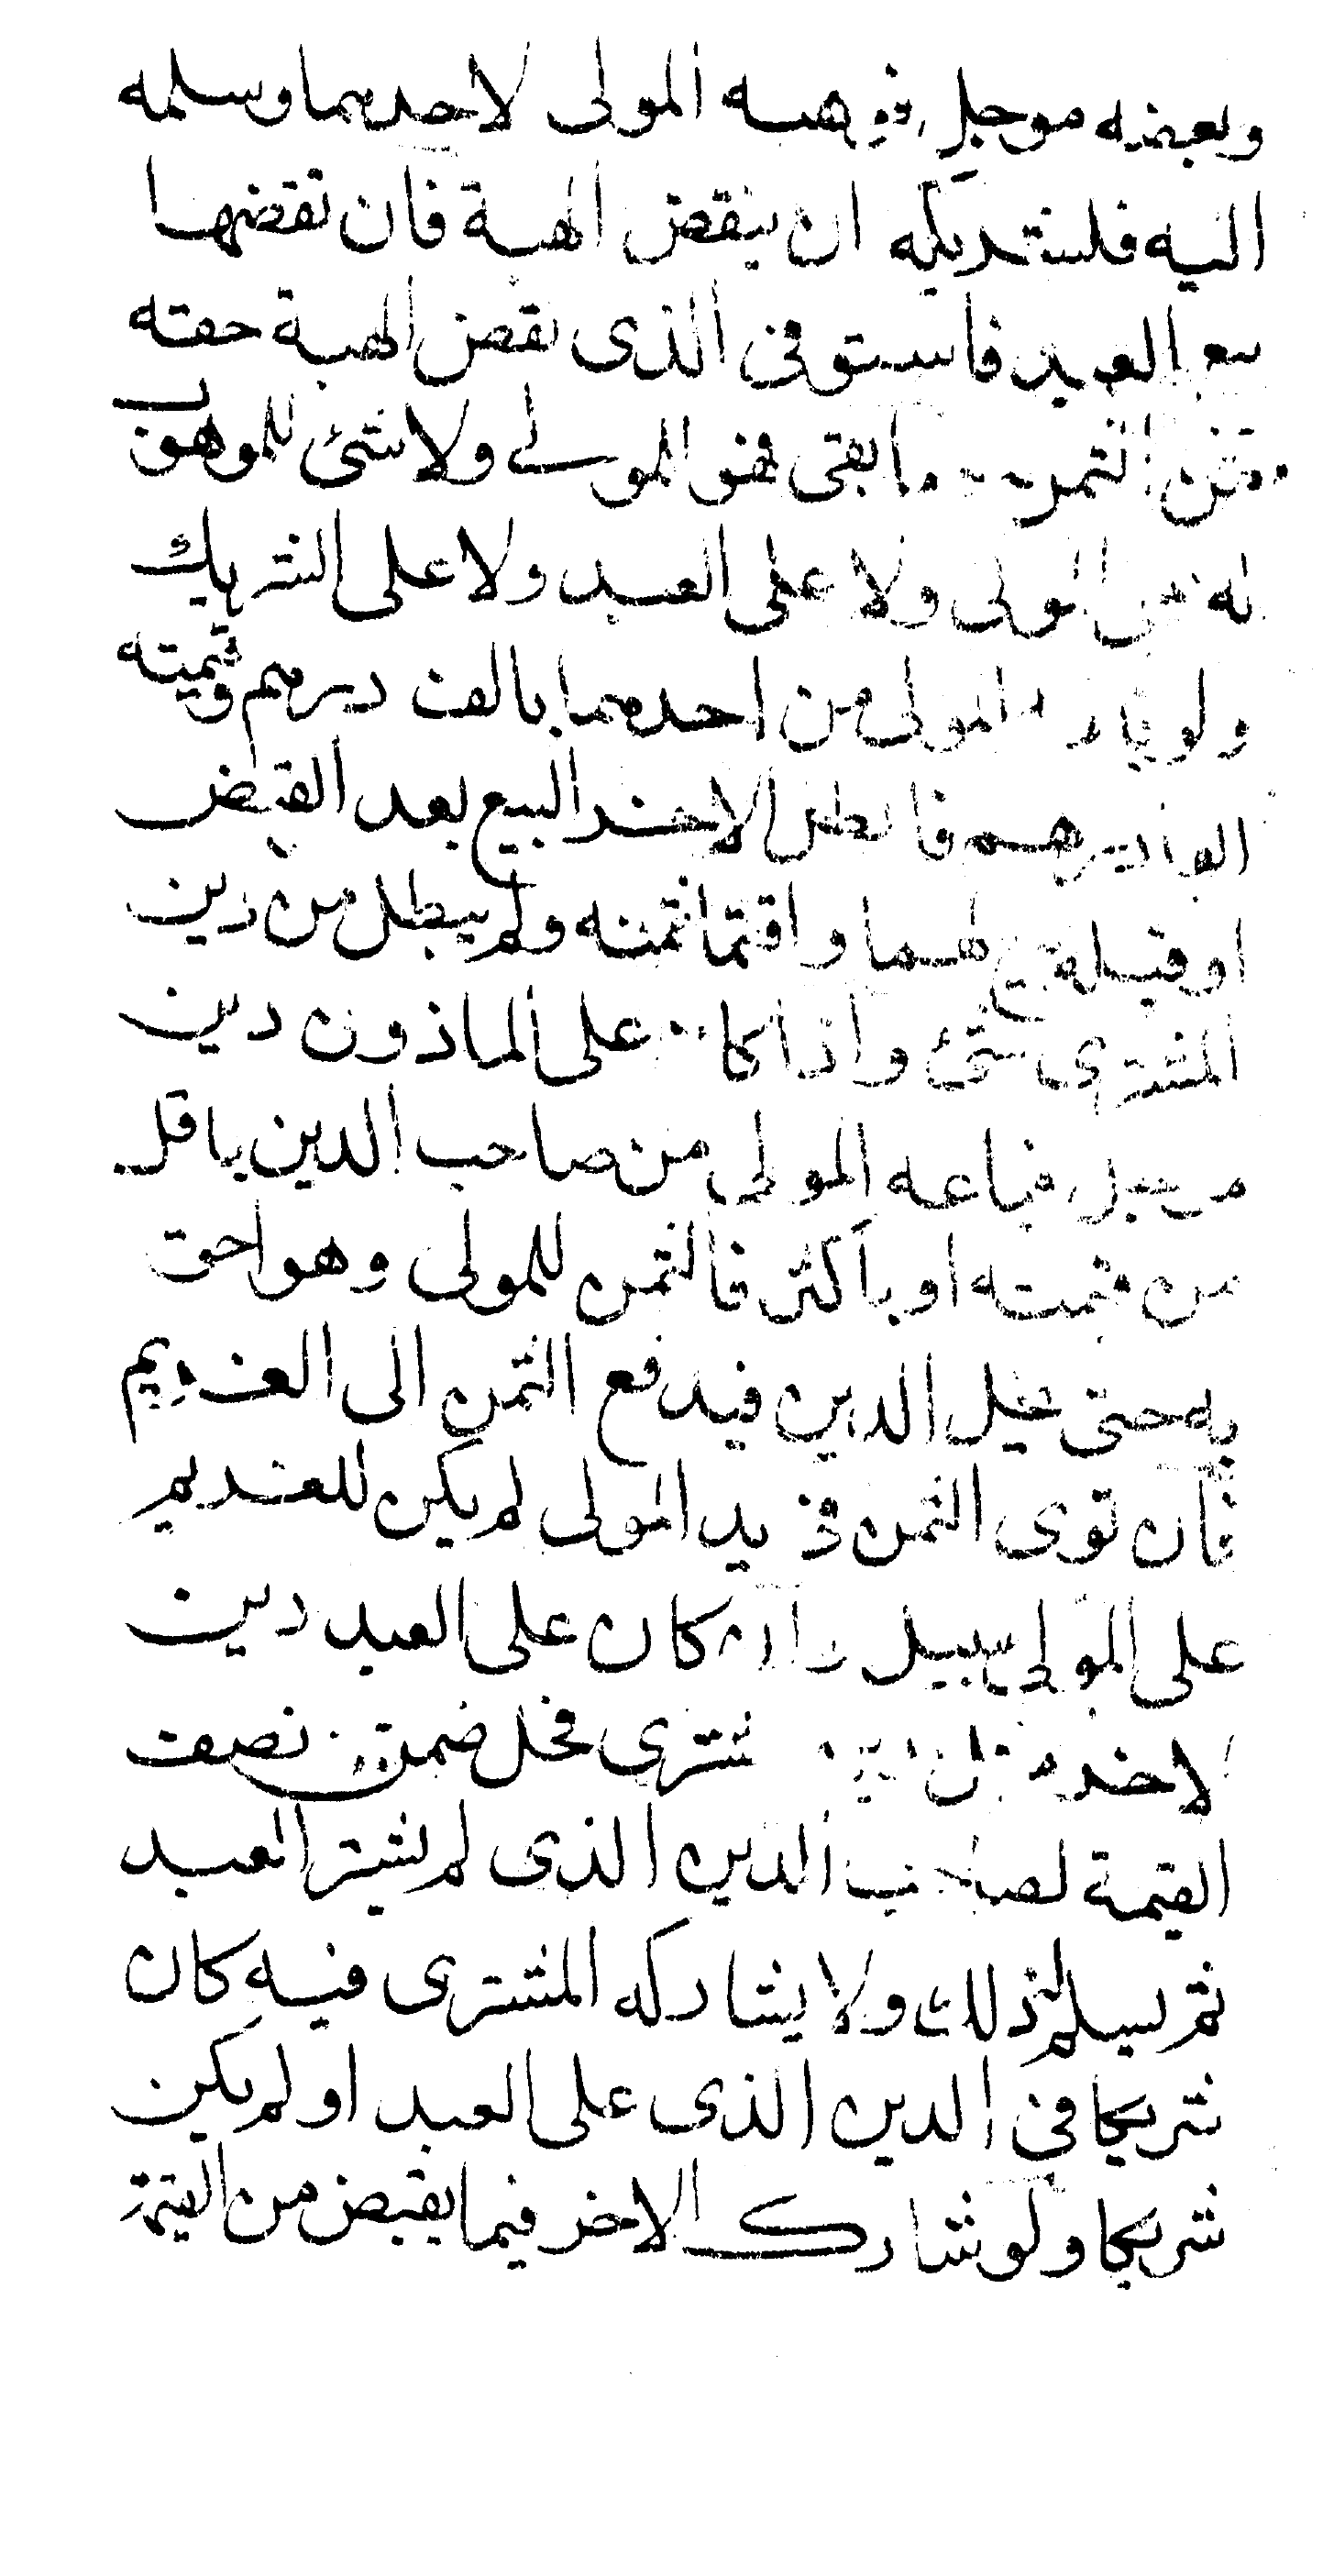 وبعضه موجل فوهبه المولى لاحدهما وسلمه
اليه فلشريكه ان ينقض الهبة فان نقضها
بيع العبد فاستوفى الذى نقض الهبة حقه
من الثمن وما بقى فهو للمولى ولا شئ للموهوب
له على المولى ولا على العبد ولا على الشريك
ولو باعه المولى من احدهما بالف درهم وقيمته
الف درهم فابطل الاخر البيع بعد القبض
او قبله بيع لهما واقتسما ثمنه ولم يبطل من دين
المشترى شئ واذا كان على الماذون دين
موجل فباعه المولى من صاحب الدين باقل
من قيمته او باكثر فالثمن للمولى وهو احق
به حتى يحل الدين فيدفع الثمن الى الغريم
فان توى الثمن فى يد المولى لم يكن للغريم
على المولى سبيل وان كان على العبد دين
لاخر مثل دين المشترى فحل ضمن نصف
القيمة لصاحب الدين الذى لم يشتر العبد
ثم يسلم له ذلك ولا يشاركه المشترى فيه كان
شريكا فى الدين الذى على العبد او لم يكن
شريكا ولو شارك الاخر فيما يقبض من القيمة